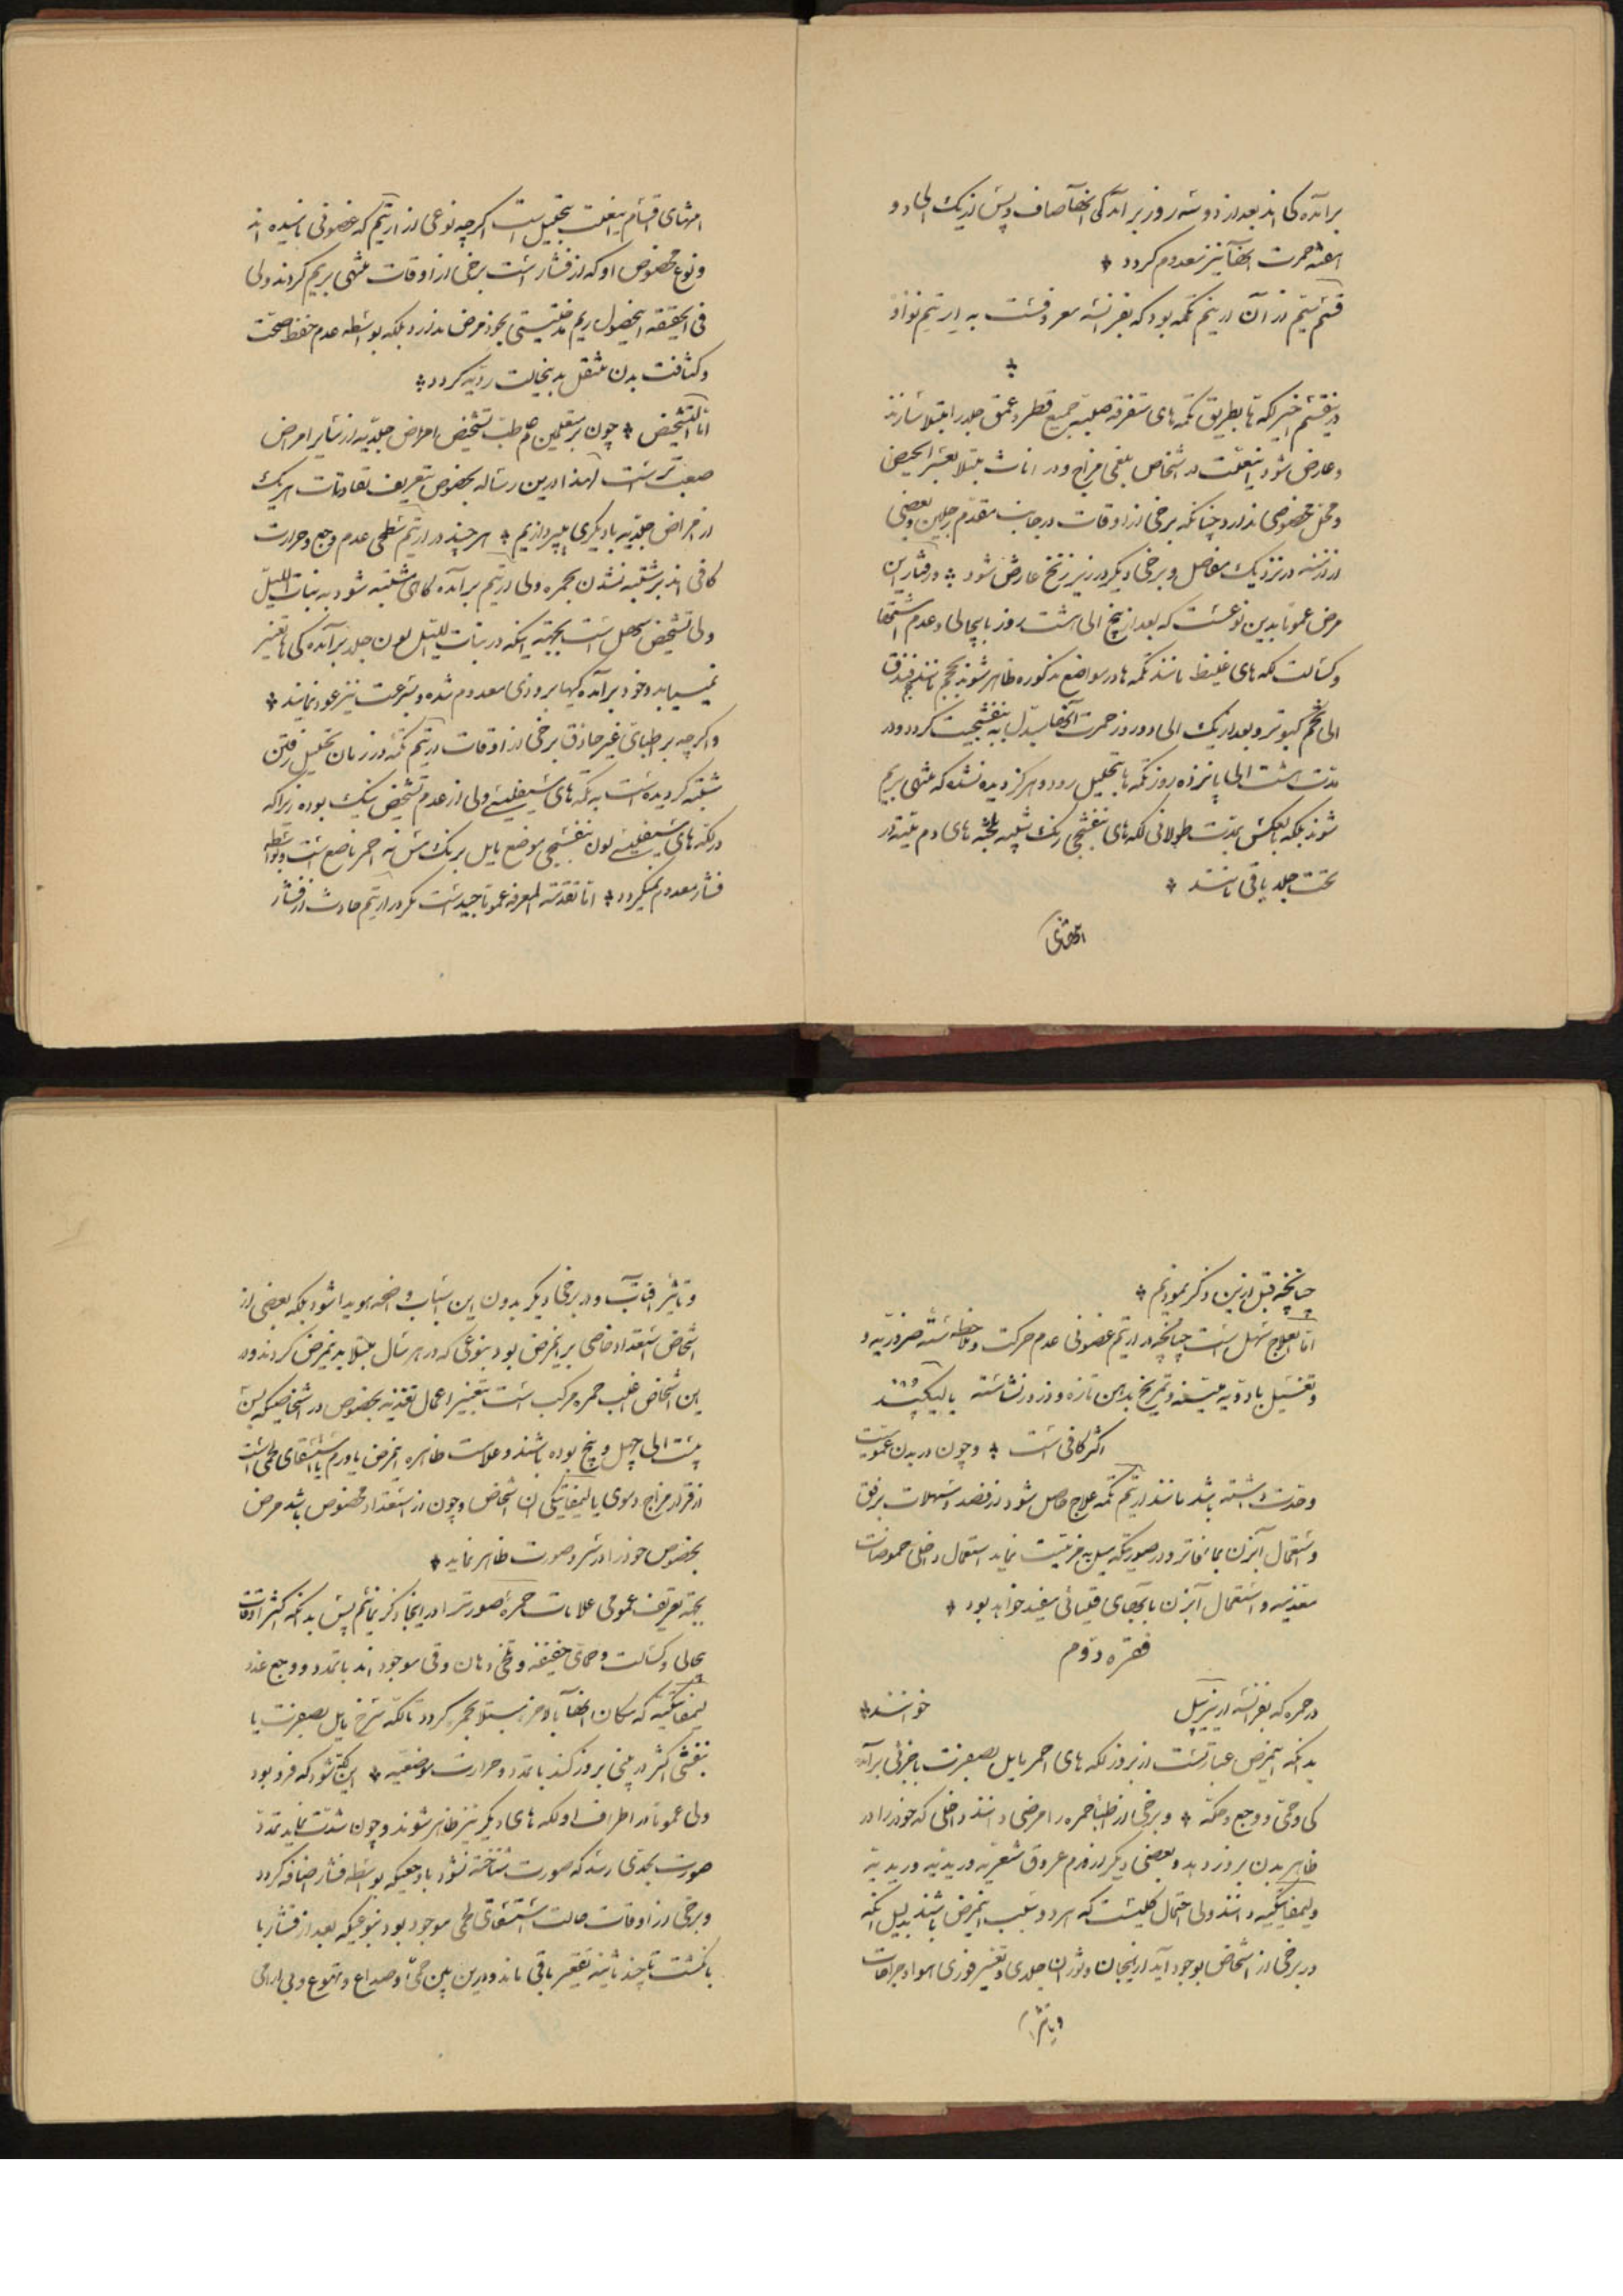 برآمده کی اند بعد از دو سه روز برآمدگی آنها صاف و پس از یک الی دو
هفته حمرت آنها نیز معدوم کردد
قسم سیم از آن اریتم تکمه بود که بفرانسه معروفست به اریتم نوادو
در این قسم اخیر لکه ها بطریق تکمه های متفرقه صلبه جمیع قطر و عمق جلد را مبتلا سازند
و عارض شود این علت در اشخاص بلغمی مزاج و در اناث مبتلا بعسر الحیض
و محل مخصوصی ندارد چنانکه برخی از اوقات در جانب مقدم رجلین و بعضی
از ازمنه در نزدیک مفاصل و برخی دیگر در زیر زنخ عارض شود و رفتار این
مرض عموماً بدین نوعست که بعد از پنج الی هشت روز با بیحالی و عدم اشتها
و کسالت لکه های غلیظ مانند تکمه ها در مواضع مذکوره ظاهر شوند بحجم مانند فندق
الی تخم کبوتر و بعد از یک الی دو روز حمرت آنها مبدل به بنفشجیت کردد و در
مدت هشت الی پانزده روز تکمه ها بتحلیل رود و هرگز دیده نشده که منتهی بریم
شوند بلکه بالعکس بمدت طولانی لکه های بنفشجی رنک شبیه بلخته های دم میته در
تحت جلد باقی مانند
انتهای
انتهای اقسام این علت بتحلیل است اگرچه نوعی از اریتم که عضونی نامیده اند
و نوع مخصوص او که از فشار است برخی از اوقات منتهی بریم کردند ولی
فی الحقیقه این حصول ریم مدخلیتی بخود مرض ندارد بلکه بواسطه عدم حفظ صحت
و کثافت بدن منتقل بدینحالت ردیه کردد
اما التشخیص چون بر متعلمین علم طب تشخیص امراض جلدیه از سایر امراض
صعب تر است لهذا در این رساله بخصوص بتعریف تفاوتات هر یک
از امراض جلدیه با دیگری بپردازیم هر چند در اریتم سطحی عدم وجع و حرارت
کافی اند بر مشتبه نشدن بحمره ولی اریتم برآمده کاهی مشتبه شود به بنات اللیل
ولی تشخیص سهل است بجهة اینکه در بنات اللیل لون جلد برآمده کی ها تغییر
نمییابد و خود برآمده کیها بزودی معدوم شده و بسرعت نیز عود نمایند
و اگرچه بر اطبای غیر حاذق برخی از اوقات اریتم تکمه در زمان تحلیل رفتن
مشتبه کردیده است به لکه های سیفلیسی ولی از عدم تشخیص نیک بوده زیرا که
در لکه های سیفلیسی لون بنفشجی موضع مایل برنک مس نه احمر ناصع است و بواسطه
فشار معدوم نمیکردد اما تقدمة المعرفه عموماً جید است مکر در اریتم حادث از فشار
چنانچه قبل از این ذکر نمودیم
اما العلاج سهل است چنانچه در اریتم عضونی عدم حرکت و ملاحظه سته ضروریه و
و تغسیل بادویه ملینه و تمریخ بدهن تازه و ذرور نشاسته یا لیکپد
اکثر کافی است و چون در بدن عمومیت
و حدت داشته باشد مانند اریتم تکمه علاج حاصل شود از فصد و مسهلات برفق
و استعمال آبزن بماء فاتر و در صورتیکه میل به مزمنیت نماید استعمال داخلی حموضات
معدنیه و استعمال آبزن بآبهای قلیائی مفید خواهد بود
فقره دوم
در حمره که بفرانسه اریزیپل خوانند
بدانکه این مرض عبارتست از بروز لکه های احمر مایل بصفرت با جزئی برآمده
کی و حمی و وجع و حکه و برخی از اطبا حمره را مرضی دانند داخلی که خود را در
ظاهر بدن بروز دهد و بعضی دیگر از ورم عروق شعریه وریدیه وریدیه
ولیمفاتیکیه دانند ولی احتمال کلیست که هر دو سبب این مرض باشند بدلیل آنکه
در برخی از اشخاص بوجود آید از هیجان و ثوران جلدی و تغییر فوری هوا و جراحات
و تاثیر
و تاثیر آفتاب و در برخی دیگر بدون این اسباب واضحه هویدا شود بلکه بعضی از
اشخاص استعداد خاصی بر این مرض بود بنوعی که در هر سال مبتلا بدین مرض کردند و در
این اشخاص اغلب حمره مرکب است بتغییر اعمال تغذیه بخصوص در اشخاصیکه بسن
بیست الی چهل و پنج بوده باشند و علامت ظاهره این مرض یا ورم یا استسقای لحمی است
از قرار مزاج دموی یا لیمفاتیکی آن اشخاص و چون از استعداد مخصوص باشد مرض
بخصوص خود را در سر و صورت ظاهر نماید
بجهة تعریف عمومی علامات حمره صورت را در اینجا ذکر نمائیم پس بدانکه اکثر اوقات
بیحالی و کسالت و حمای خفیفه و تلخی دهان و قی موجود اند با تمدد و وجع غدد
لیمفاتیکیه که مکان آنها بالاخره مبتلا بحمره کردد تا لکه سرخ مایل بصفرت یا
بنفشی اکثر در بینی بروز کند با تمدد و حرارت موضعیه این لکه شود که فرو بود
ولی عموماً در اطراف او لکه های دیگر نیز ظاهر شوند و چون شدت نماید تمدد
صورت بحدی رسد که صورت شناخته نشود با وجعیکه بواسطه فشار اضافه کردد
و برخی از اوقات حالت استسقای لحمی موجود بود بنوعیکه بعد از فشار با
انکشت تا چند ثانیه تقعیر باقی ماند و در این بین حمی و صداع و تهوع و بی آرامی